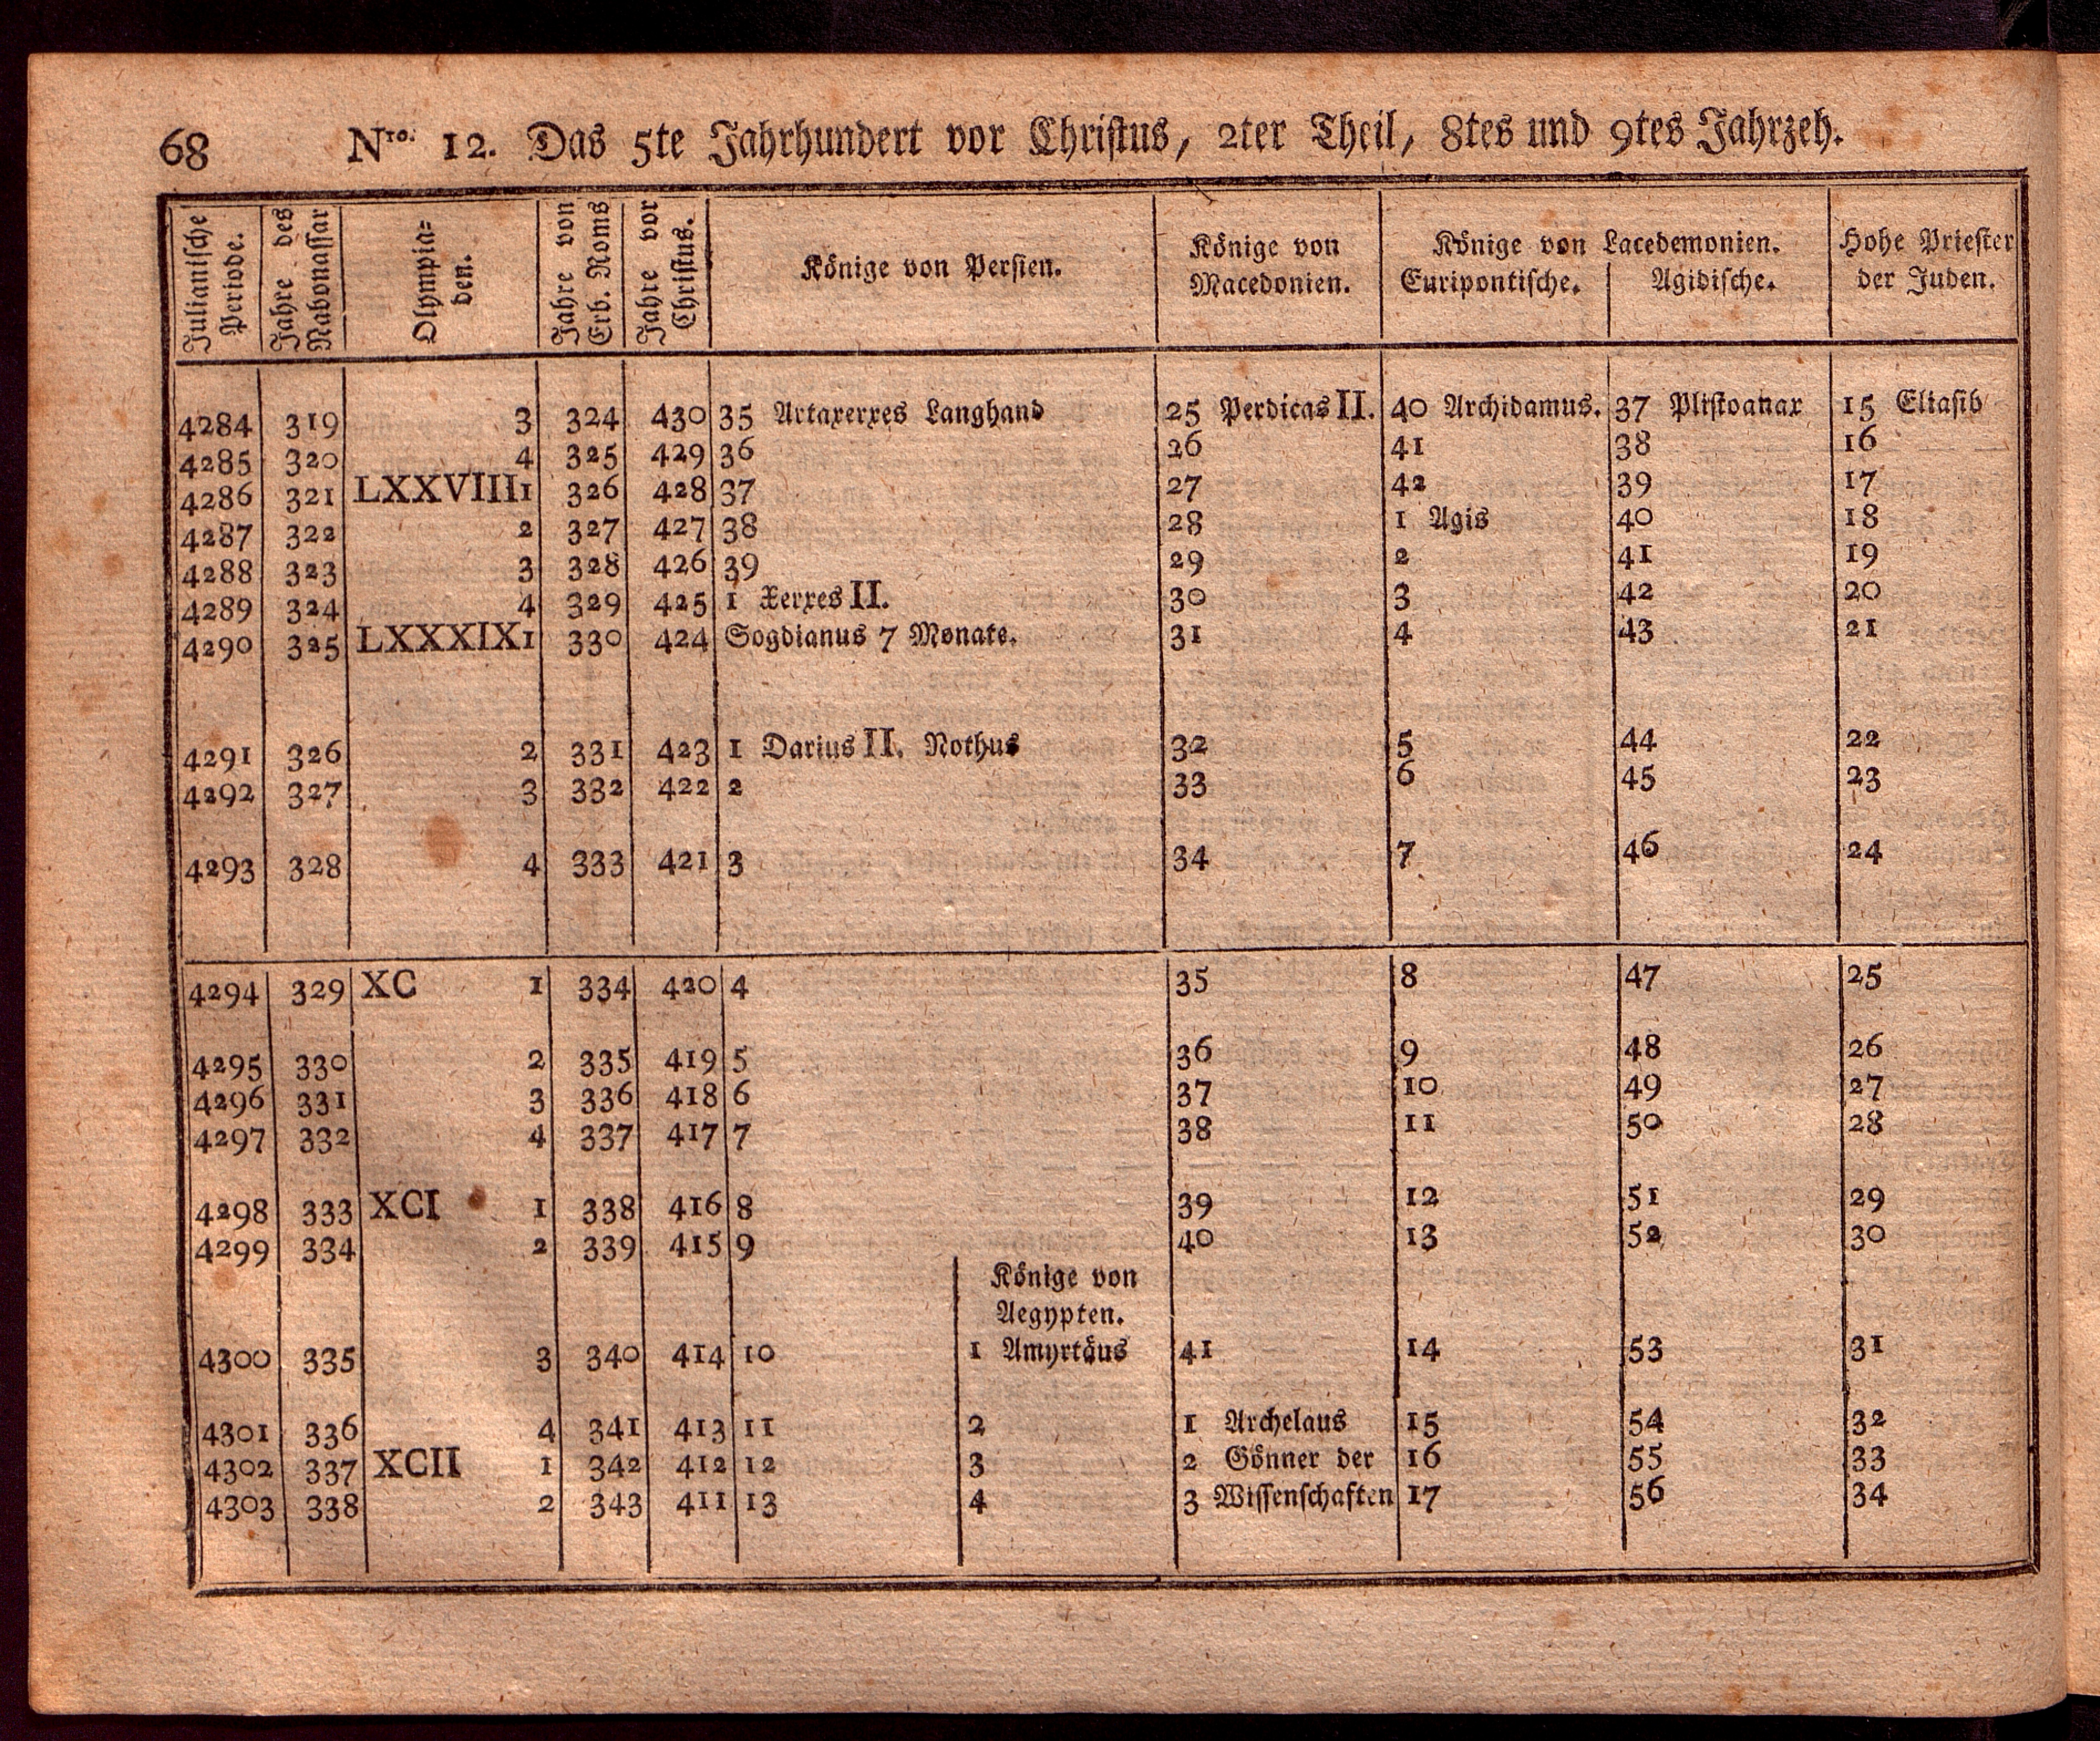 68 Nro. 12. Das 5te Jahrhundert vor Christus, 2ter Theil, 8tes und 9tes Jahrzeh.
Julianische Periode.
Jahre des Nabonassar
Olympia=
den.
Jahre von Erb. Roms
Jahre vor Christus.
Könige von Persien.
Könige von
Macedonien.
Könige von Lacedemonien.
Euripontische. Agidische.
Hohe Priester
der Juden.
4284 319 3 324 430 35 Artaxerxes Langhand 25 Perdicas II. 40 Archidamus. 37 Plistoanax 15 Eliasib
4285 320 4 325 429 36 26 41 38 16
4286 321 LXXVIII 1 326 428 37 27 42 39 17
4287 322 2 327 427 38 28 1 Agis 40 18
4288 323 3 328 426 39 29 2 41 19
4289 324 4 329 425 1 Xerxes II. 30 3 42 20
4290 325 LXXXIX 1 330 424 Sogdianus 7 Monate. 31 4 43 21
4291 326 2 331 423 1 Darius II. Nothus 32 5 44 22
4292 327 3 332 422 2 33 6 45 23
4293 328 4 333 421 3 34 7 46 24
4294 329 XC 1 334 420 4 35 8 47 25
4295 330 2 335 419 5 36 9 48 26
4296 331 3 336 418 6 37 10 49 27
4297 332 4 337 417 7 38 11 50 28
4298 333 XCI 1 338 416 8 39 12 51 29
4299 334 2 339 415 9 40 13 52 30
Könige von
Aegypten.
4300 335 3 340 414 10 1 Amyrtäus 41 14 53 31
4301 336 4 341 413 11 2 1 Archelaus 15 54 32
4302 337 XCII 1 342 412 12 3 2 Gönner der 16 55 33
4303 338 2 343 411 13 4 3 Wissenschaften 17 56 34